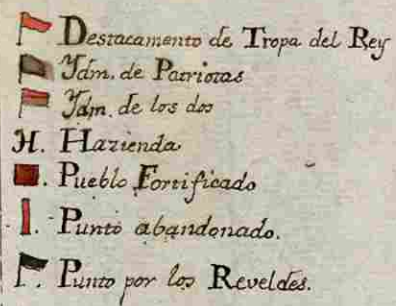 Destacamento de Tropa del Rey
Ydm. de Patriotas
Ydm. de los dos
H. Hazienda
. Pueblo Fortificado
. Punto abandonado.
. Punto por los Reveldes.